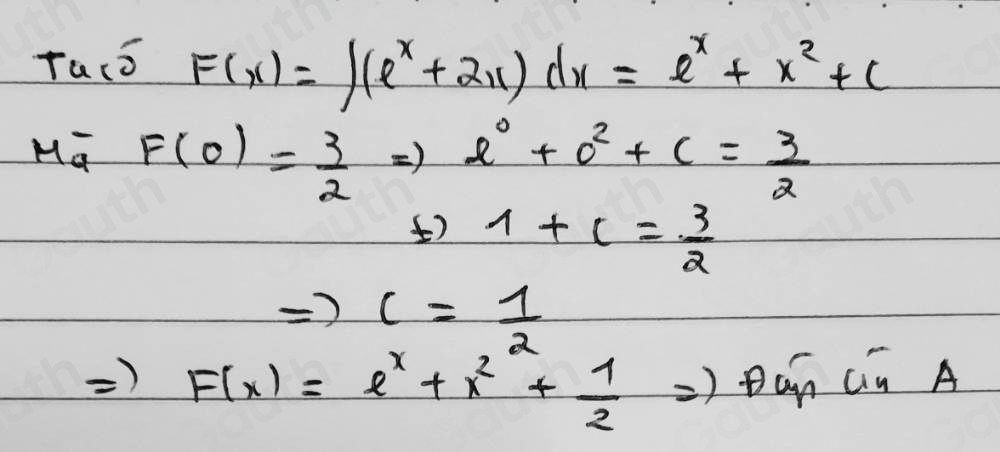 Ta có F(x) = ∫(e^x + 2x) dx = e^x + x² + C
Mà F(0) = 3/2 => e^0 + 0² + C = 3/2
⇔ 1 + C = 3/2
=> C = 1/2
=> F(x) = e^x + x² + 1/2 => Đáp án A